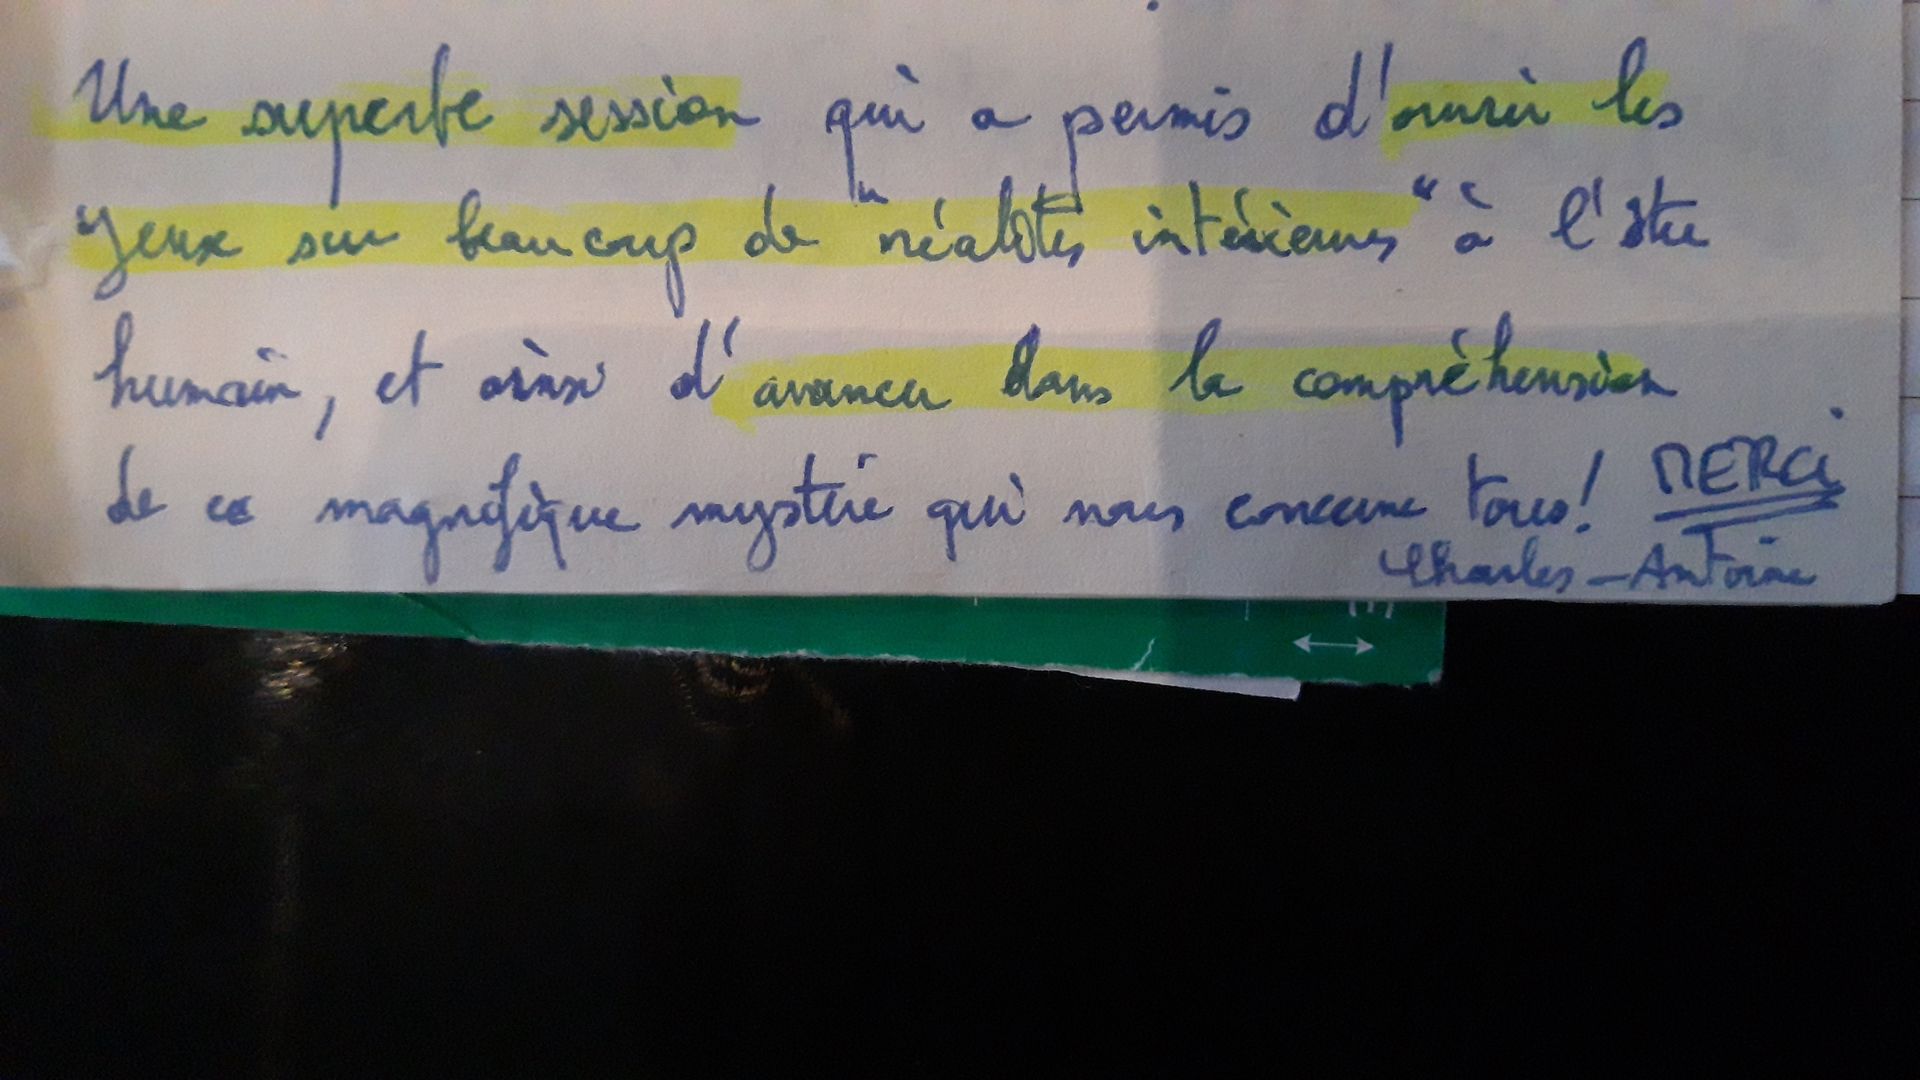 Une superbe session qui a permis d'ouvrir les
yeux sur beaucoup de "réalités intérieures" à l'être
humain, et ainsi d'avancer dans la compréhension
de ce magnifique mystère qui nous concerne tous! MERCI
Charles-Antoine